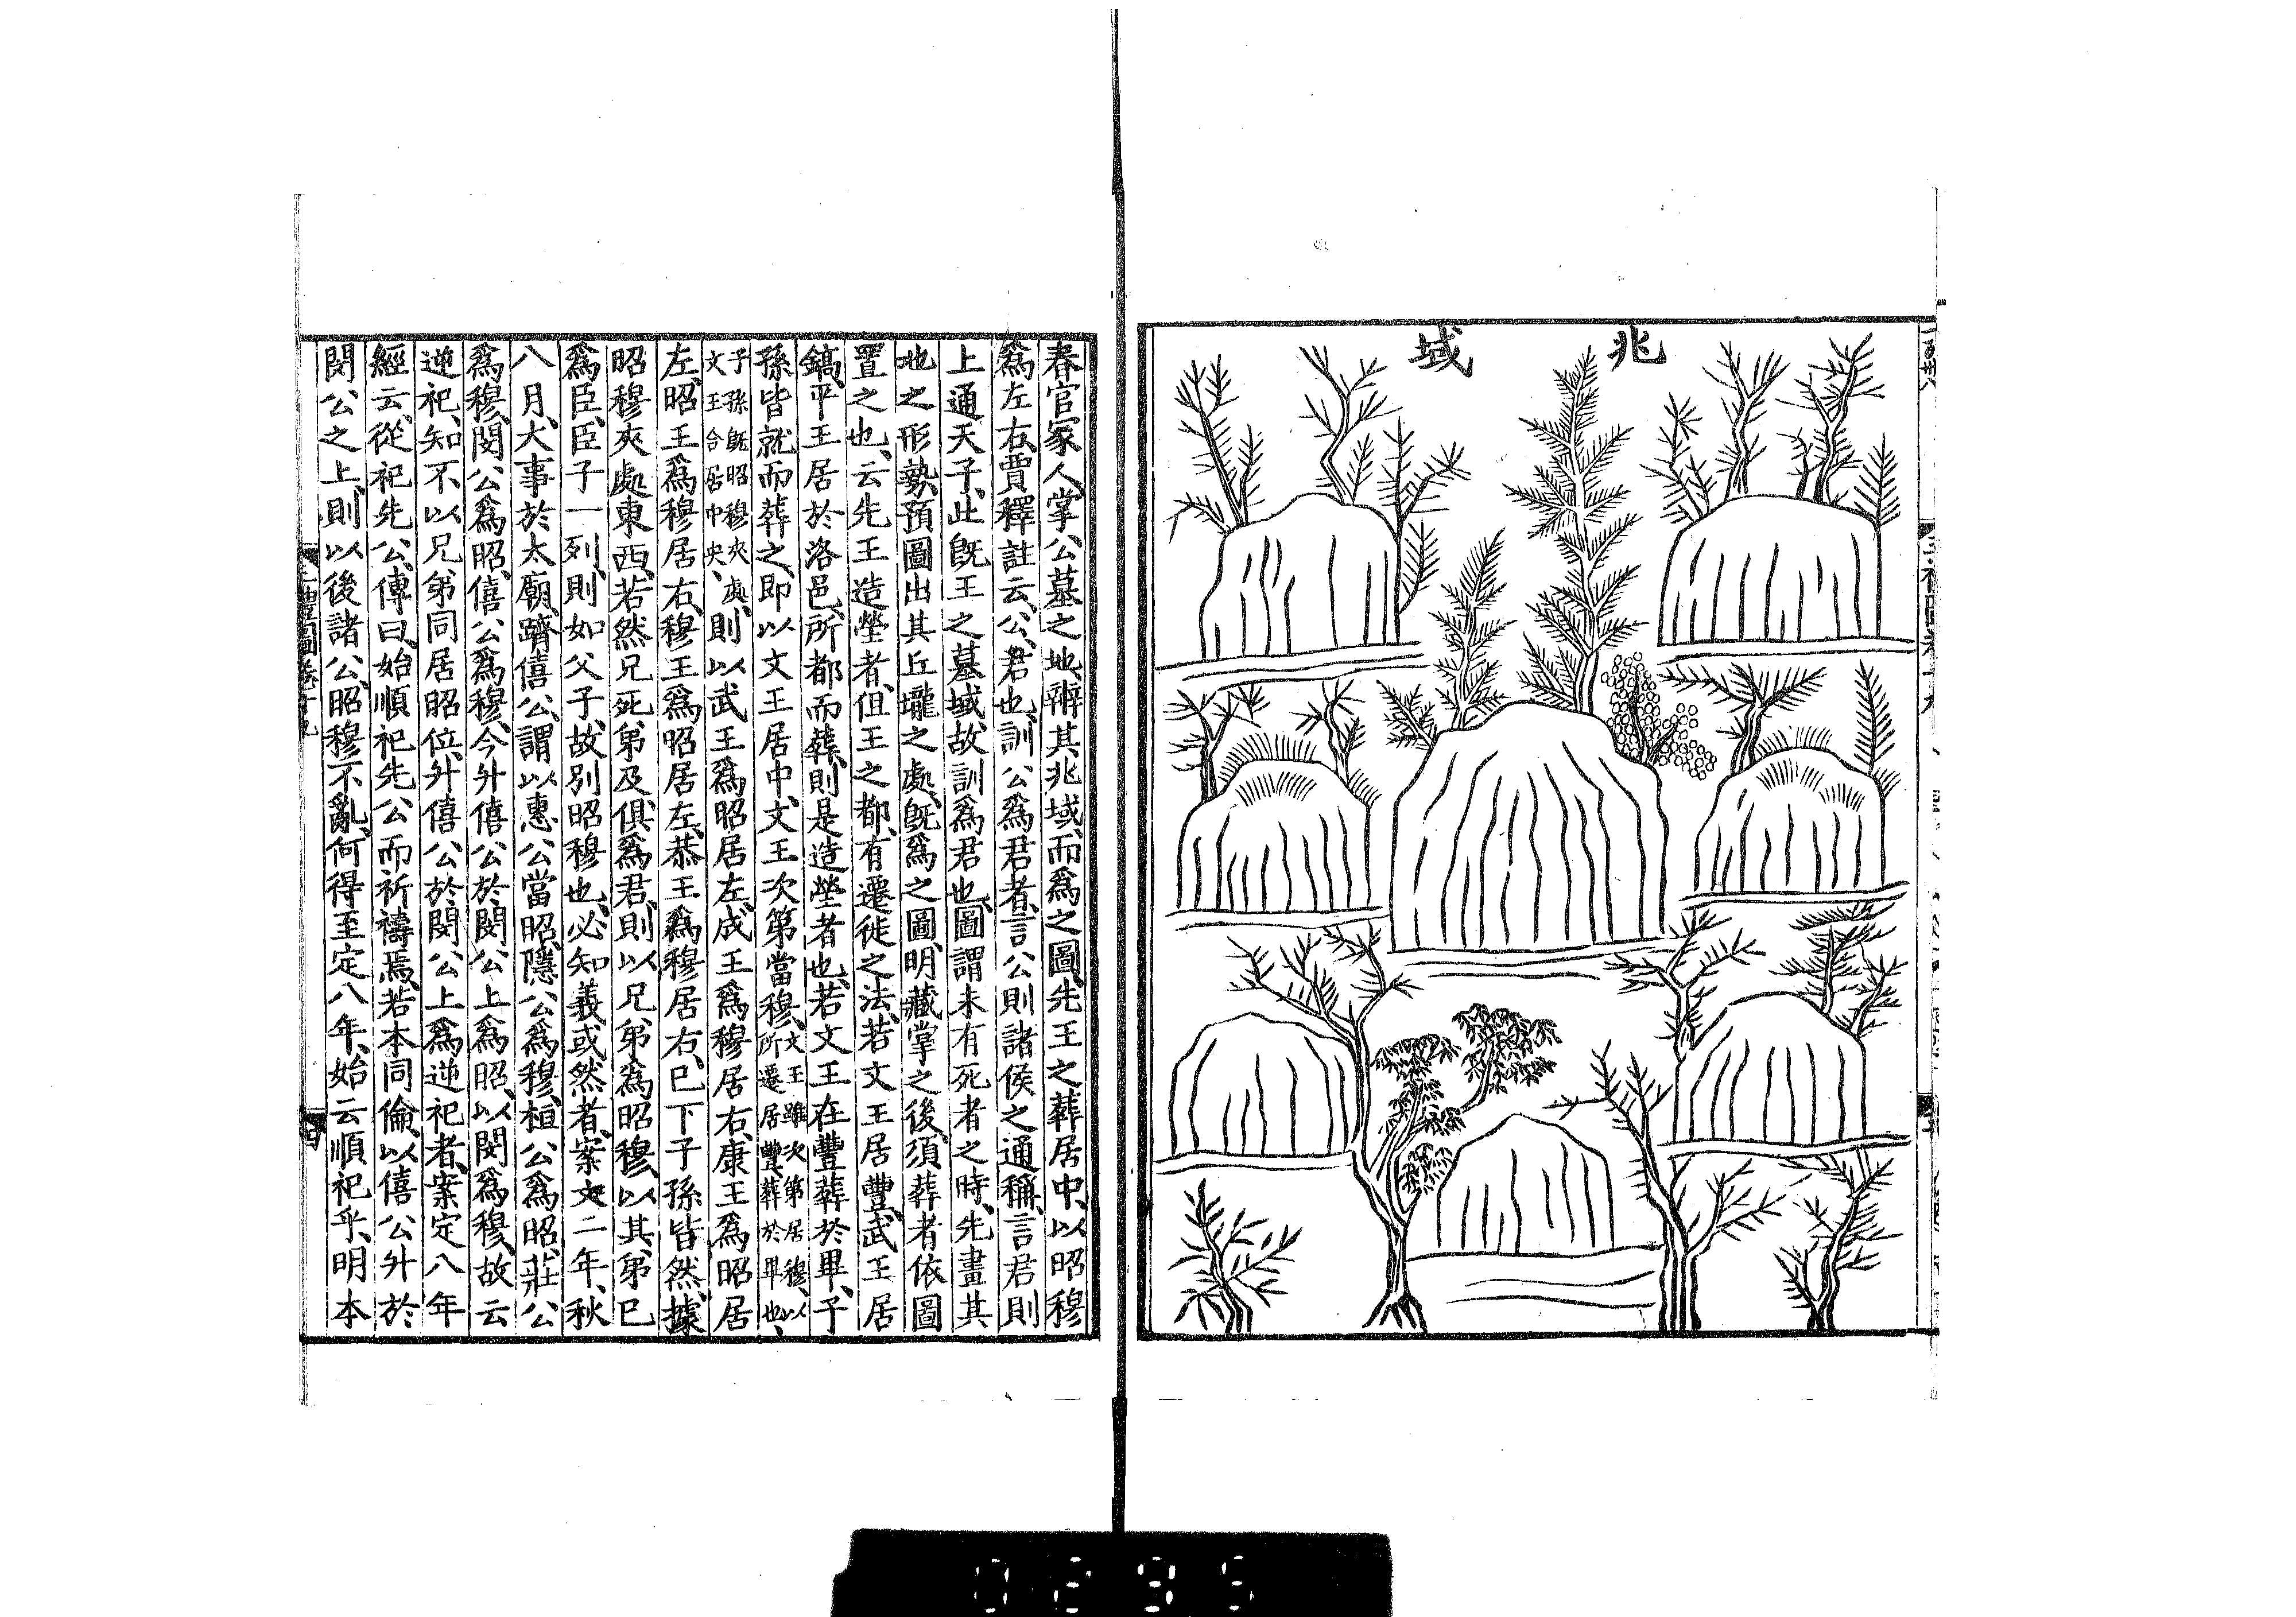 兆域
春官冢人掌公墓之地辨其兆域而爲之圖先王之葬居中以昭穆
爲左右賈釋註云公君也訓公爲君者言公則諸侯之通稱言君則
上通天子此旣王之墓域故訓爲君也圖謂未有死者之時先畫其
地之形勢預圖出其丘壠之處旣爲之圖明藏掌之後須葬者依圖
置之也云先王造塋者但王之都有遷徙之法若文王居豐武王居
鎬平王居於洛邑所都而葬則是造塋者也若文王在豐葬於畢子
孫皆就而葬之卽以文王居中文王次第當穆文王雖次第居穆以所遷居豐葬於畢也
子孫旣昭穆夾處文王合居中央則以武王爲昭居左成王爲穆居右康王爲昭居
左昭王爲穆居右穆王爲昭居左恭王爲穆居右已下子孫皆然據
昭穆夾處東西若然兄死弟及俱爲君則以兄弟爲昭穆以其弟已
爲臣臣子一列則如父子故別昭穆也必知義或然者案文二年秋
八月大事於太廟躋僖公謂以惠公當昭隱公爲穆桓公爲昭莊公
爲穆閔公爲昭僖公爲穆今升僖公於閔公上爲昭以閔爲穆故云
逆祀知不以兄弟同居昭位升僖公於閔公上爲逆祀者案定八年
經云從祀先公傳曰始順祀先公而祈禱焉若本同倫以僖公升於
閔公之上則以後諸公昭穆不亂何得至定八年始云順祀乎明本
三禮圖卷十九
四